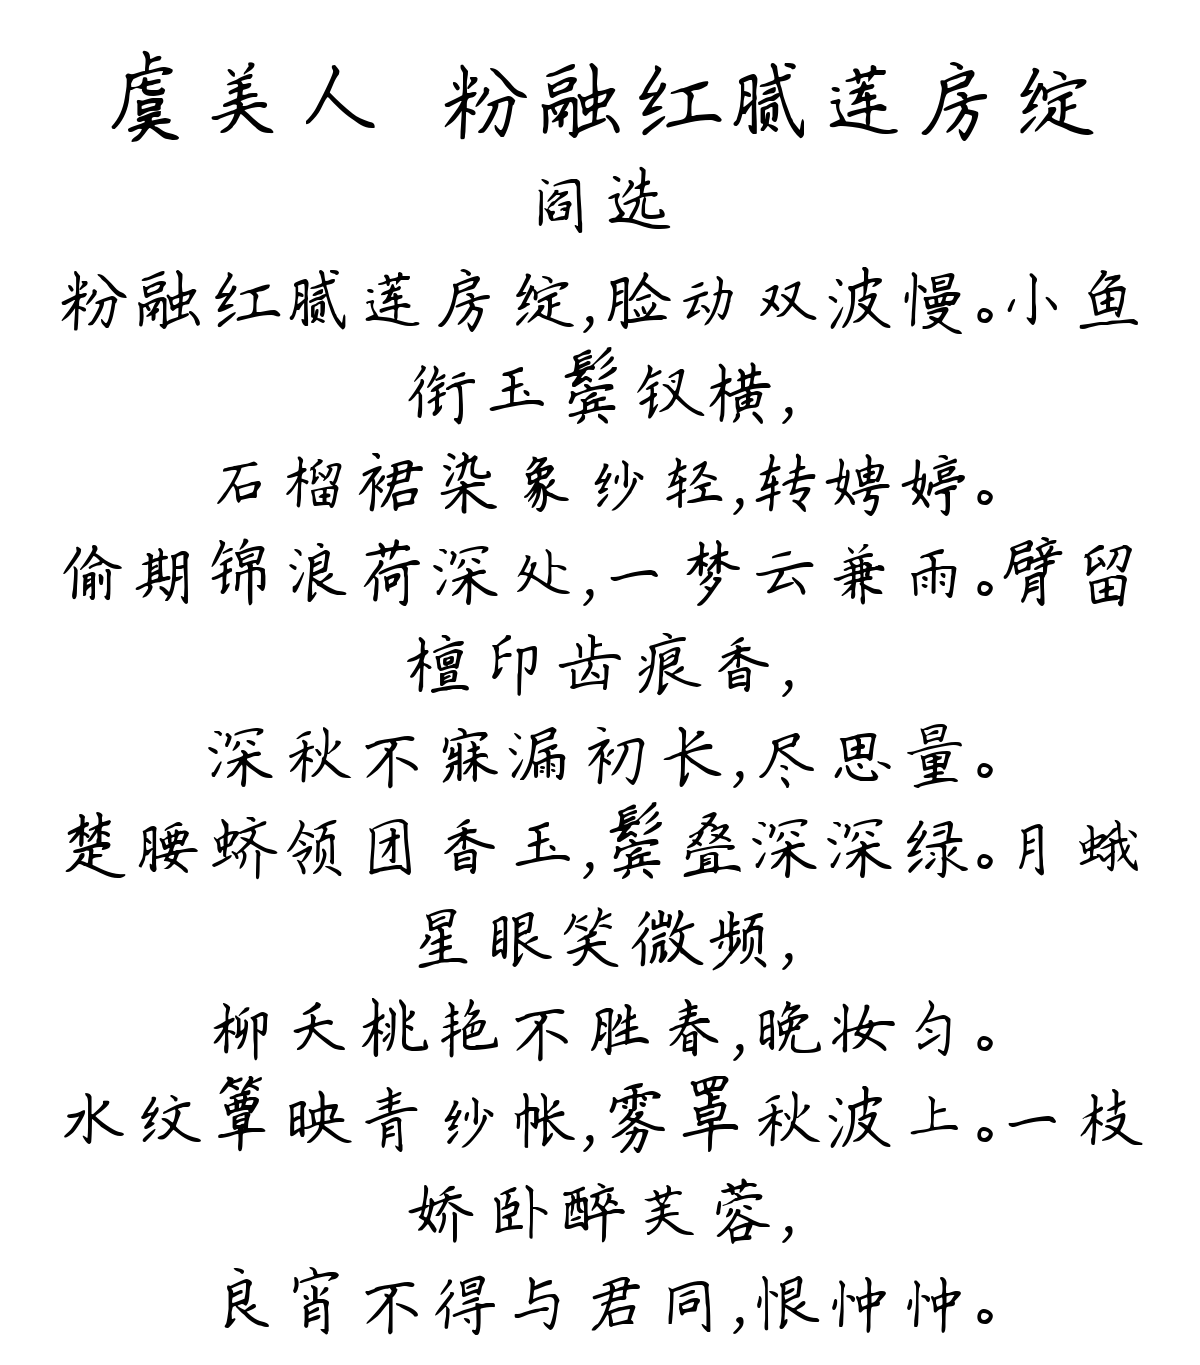 虞美人 粉融红腻莲房绽
阎选
粉融红腻莲房绽,脸动双波慢。小鱼
衔玉鬓钗横,
石榴裙染象纱轻,转娉婷。
偷期锦浪荷深处,一梦云兼雨。臂留
檀印齿痕香,
深秋不寐漏初长,尽思量。
楚腰蛴领团香玉,鬓叠深深绿。月蛾
星眼笑微频,
柳夭桃艳不胜春,晚妆匀。
水纹簟映青纱帐,雾罩秋波上。一枝
娇卧醉芙蓉,
良宵不得与君同,恨忡忡。